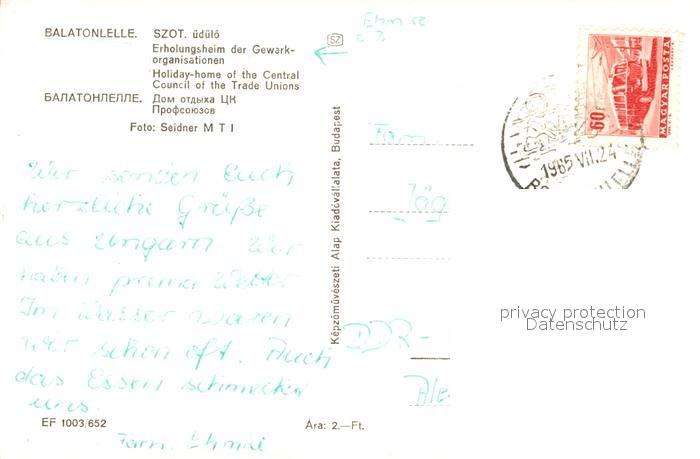 BALATONLELLE. SZOT. üdülő
Erholungsheim der Gewerk-
organisationen
Holiday-home of the Central
Council of the Trade Unions
БАЛАТОНЛЕЛЛЕ. Дом отдыха ЦК
Профсоюзов
Foto: Seidner M T I
Wir senden Euch
herzliche Grüße
aus Ungarn. Wir
haben prima Wetter
Im Wasser waren
wir schon oft. Auch
das Essen schmeckt
uns.
Fam.
EF 1003/652
Ára: 2.—Ft.
Képzőművészeti Alap Kiadóvállalata, Budapest
SZ
Fam.
DDR-
60
MAGYAR POSTA
1965 VII.24
privacy protection
Datenschutz